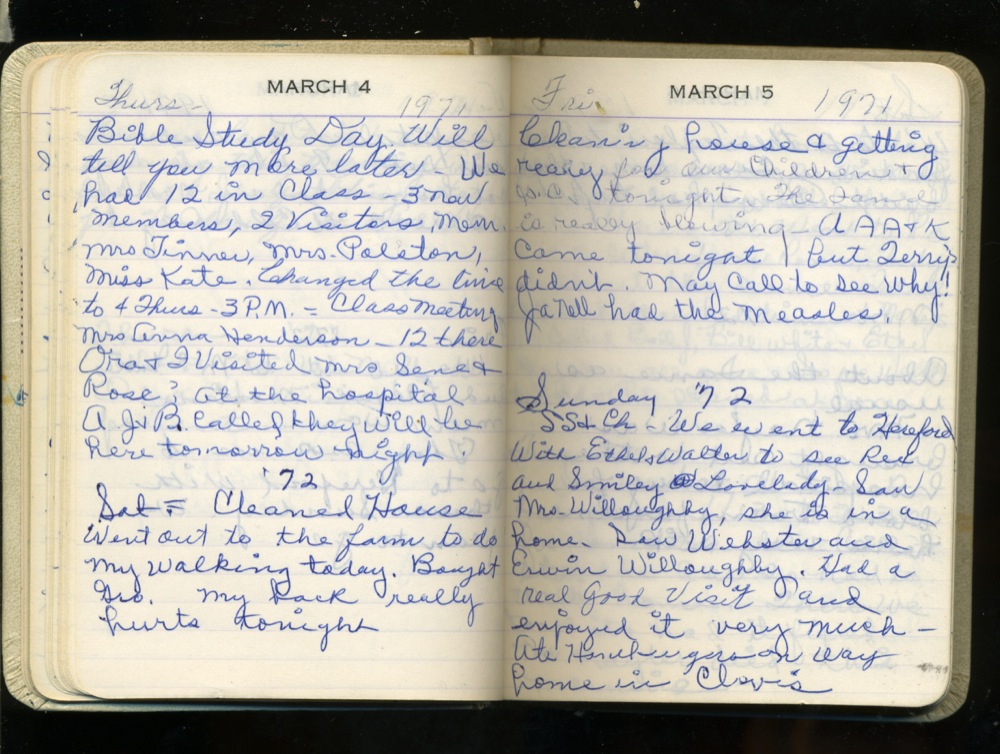 MARCH 4
Thurs- 1971
Bible Study Day. Will
tell you more later - We
had 12 in Class - 3 new
members, 2 Visitors, Mom,
mrs Tinner, Mrs. Palston,
Miss Kate. Changed the time
to 4 Thurs - 3 P.M. = Class Meeting
Mrs Anna Henderson - 12 there
Ora & I Visited mrs Sene &
Rose; at the hospital
A.J. & B. Called they will be
here tomorrow night.
'72
Sat = Cleaned House
Went out to the farm to do
my walking today. Bought
Gro. My back really
hurts tonight
MARCH 5
Fri 1971
Cleaning house & getting
ready for our Children &
tonight. The sand
is really blowing - A A A & K
Came tonigat but Terry's
didn't. May Call to see Why!!
JaNell had the measles.
Sunday '72
SS & Ch - We went to Hereford
With Ethel & Walter to see Rex
and Smiley @ Lovelady - Saw
Mrs. Willoughby, she is in a
home. Saw Webster and
Erwin Willoughby. Had a
real Good Visit and
enjoyed it very much -
Ate on way
home in Clovis